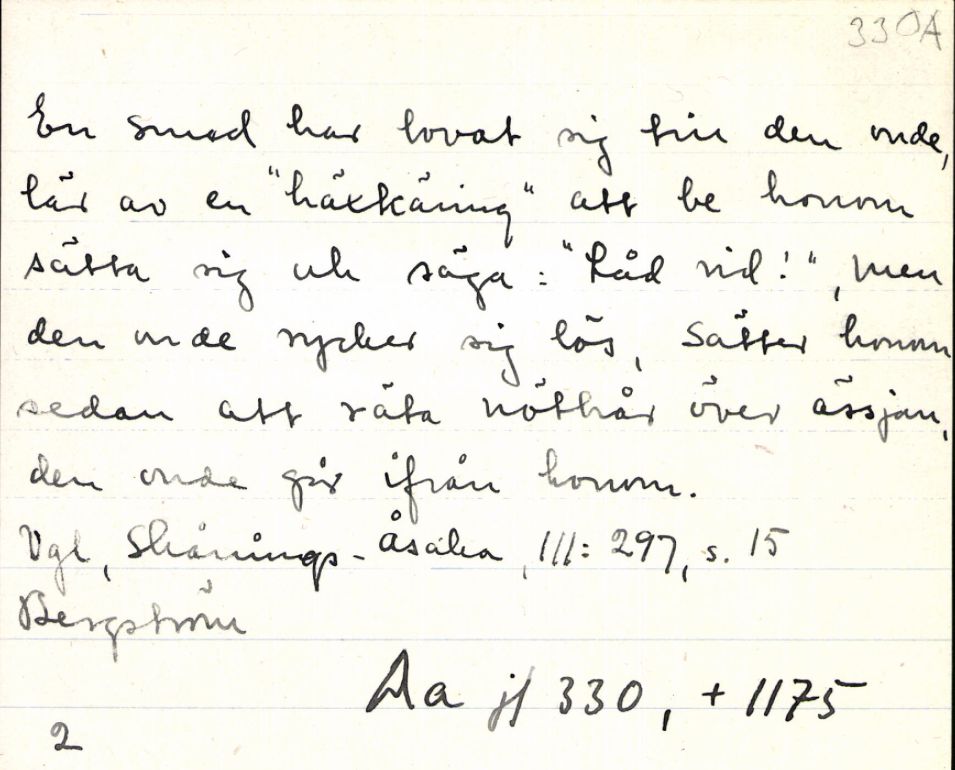 330A
En smed har lovat sig till den onde,
lär av en "häxkäring" att be honom
sätta sig och säga: "Låd vid!", men
den onde rycker sig lös, sätter honom
sedan att räta nöthår över ässjan,
den onde går ifrån honom.
Vgl, Skånings-Åsaka, III: 297, s. 15
Bergström
Aa jf 330, + 1175
2